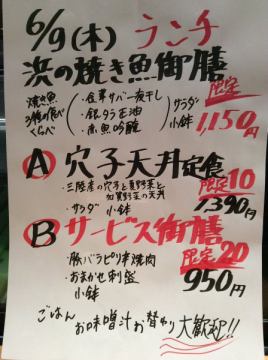 6/9(木) ランチ
浜の焼き魚御膳
焼き魚3種の食べくらべ
・金華サバ一夜干し
・銀ダラ正油
・赤魚吟醸
サラダ
小鉢
限定
1,150円
A 穴子天丼定食
・三陸産の穴子と夏野菜と
加賀野菜の天丼
・サラダ 小鉢
限定10
1390円
B サービス御膳
限定20
・豚バラピリ辛焼肉
・おまかせ刺盛
小鉢
950円
ごはん
お味噌汁お替わり 大歓迎!!